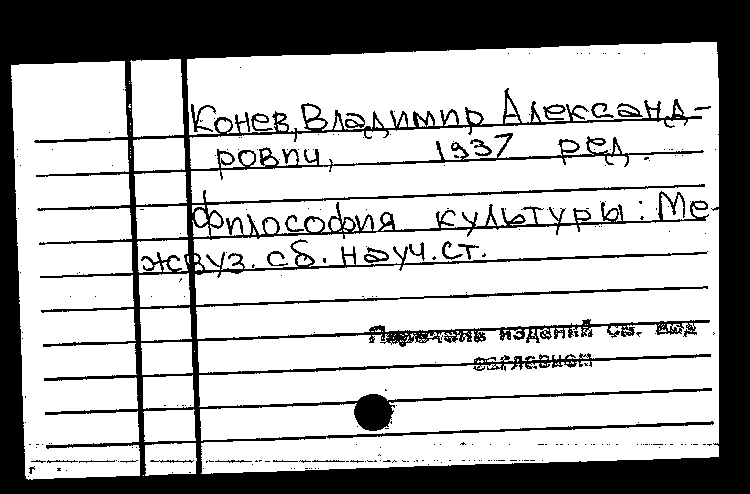 Конев, Владимир Александ-
рович, 1937 ред.
Философия культуры: Ме-
жвуз. сб. науч. ст.
Перечень изданий см. под
заглавием